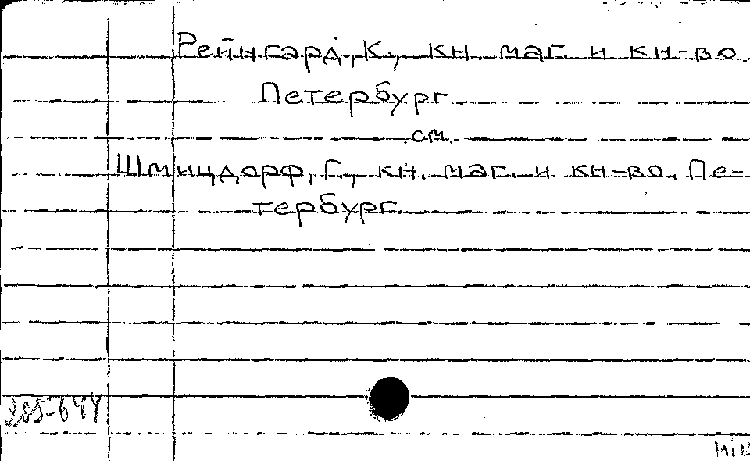 Рейнгард, К., кн. маг. и кн-во.
Петербург
см.
Шмицдорф, Г., кн. маг. и кн-во. Пе-
тербург.
285-644